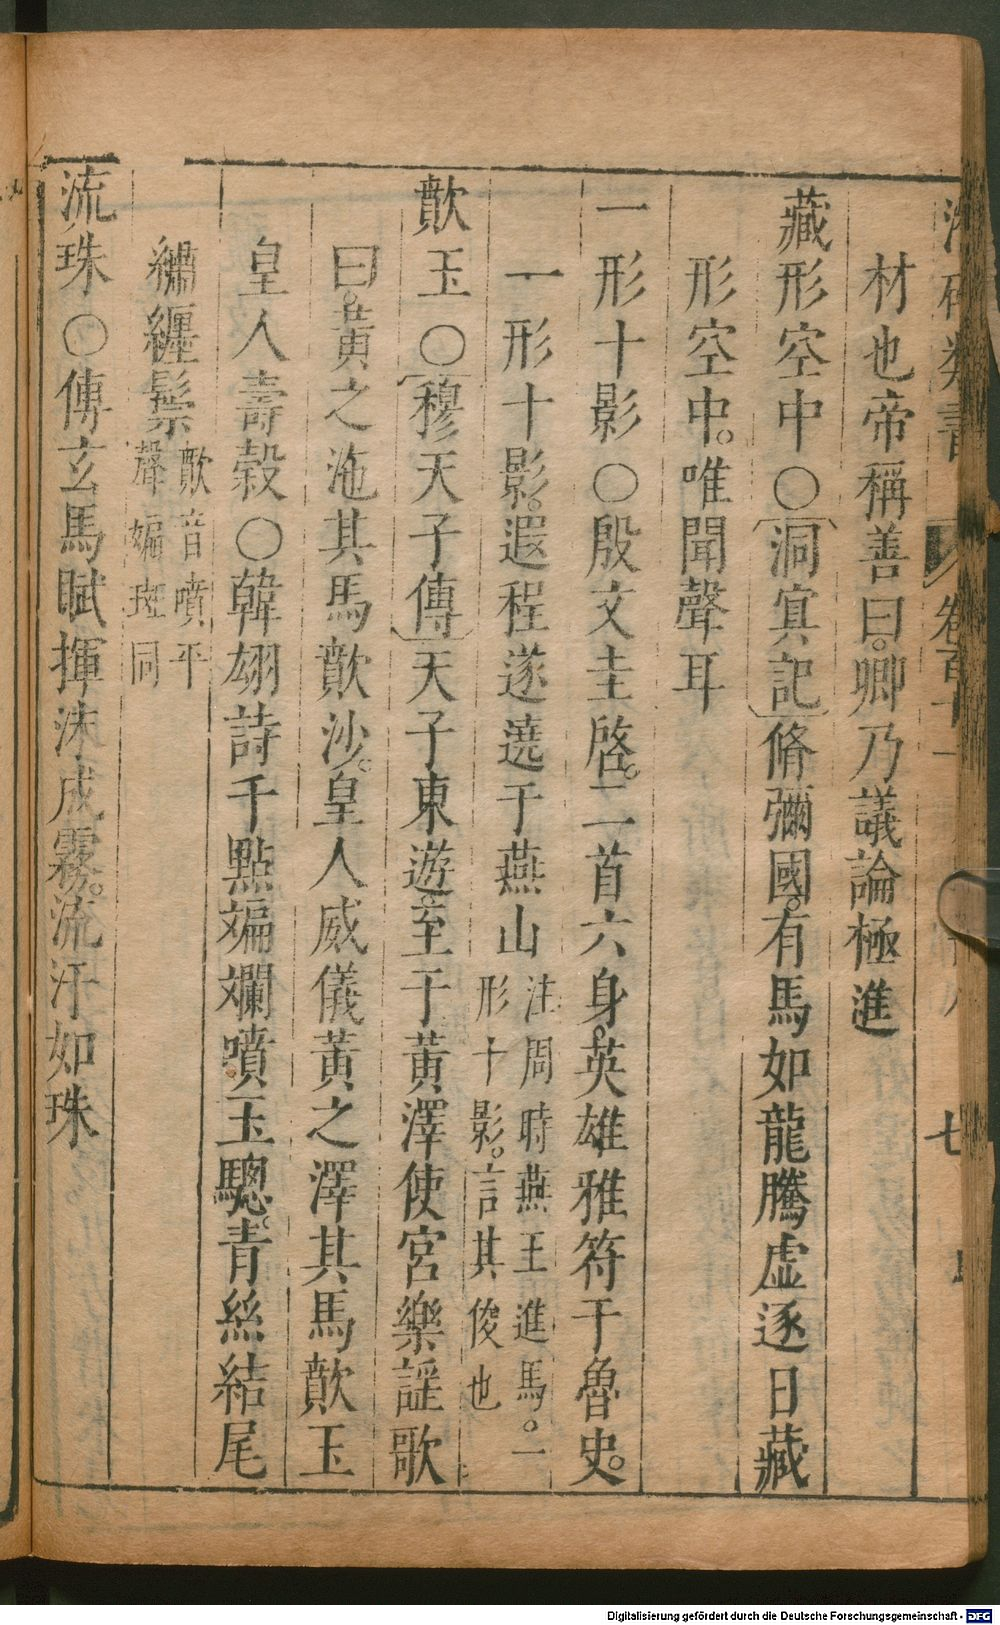 卷百十一
七
材也帝稱善曰。卿乃議論極進
藏形空中〇洞㝠記脩彌國。有馬如龍騰虛逐日藏
形空中。唯聞聲耳
一形十影〇殷文圭啓。二首六身。英雄雅符于魯史。
一形十影。遐程遂遶于燕山注周時燕王進馬。一形十影。言其俊也
歕玉〇穆天子傳天子東遊。至于黃澤使宮樂謡歌
曰。黃之沲其馬歕沙。皇人威儀黃之澤其馬歕玉
皇人壽榖〇韓翃詩千點斒斕噴玉驄。青絲結尾
繡纏鬃歕音噴平聲斒斑同
流珠〇傅玄馬賦揮沫成霧。流汗如珠
Digitalisierung gefördert durch die Deutsche Forschungsgemeinschaft - DFG